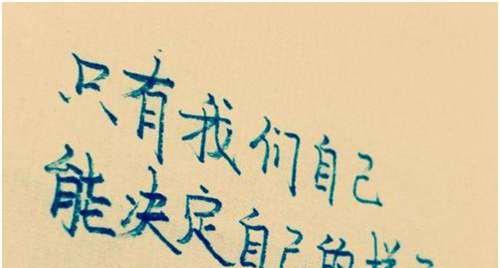 只有我们自己
能决定自己的样